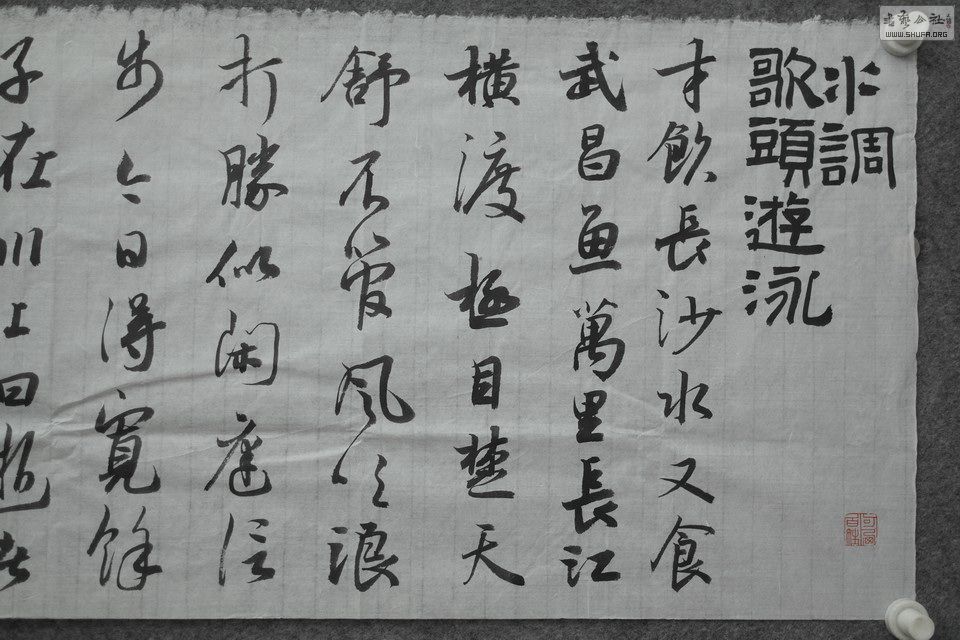 水調
歌頭遊泳
才飲長沙水又食
武昌魚萬里長江
橫渡極目楚天
舒不管風吹浪
打勝似閑庭信
步今日得寬餘
子在川上曰逝者
書藝公社
WWW.SHUFA.ORG